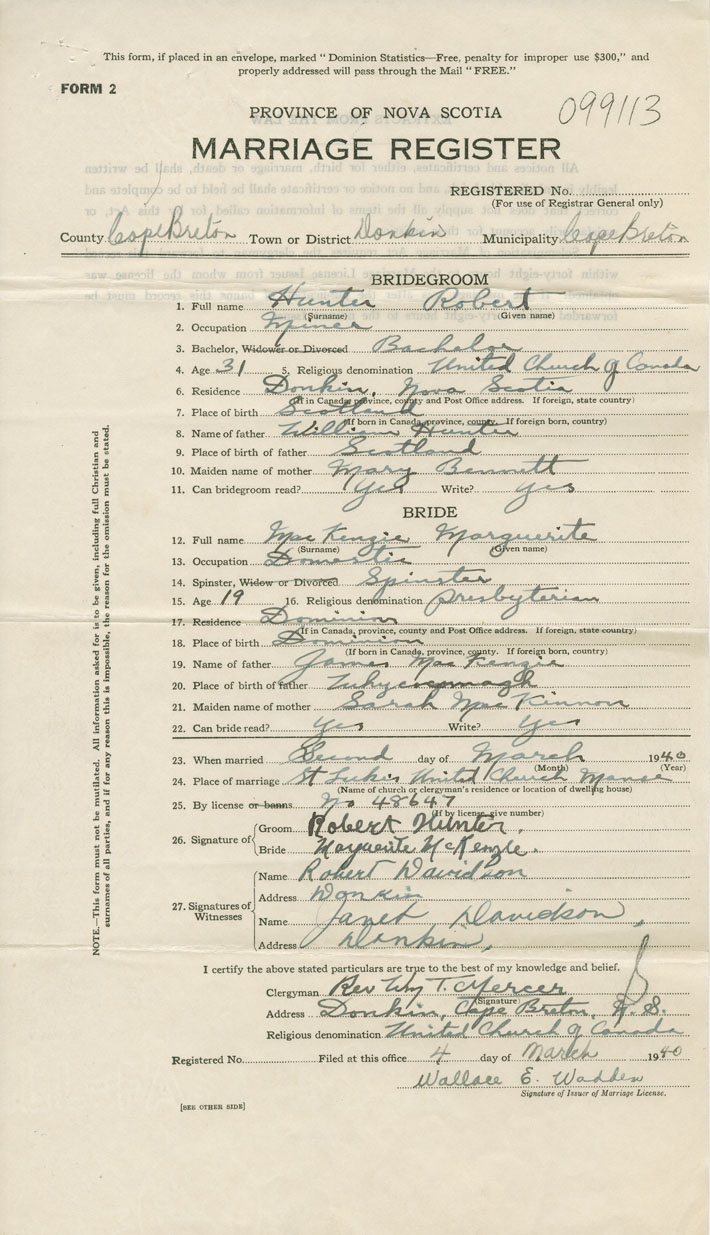 This form, if placed in an envelope, marked "Dominion Statistics—Free, penalty for improper use $300," and
properly addressed will pass through the Mail "FREE."
FORM 2
PROVINCE OF NOVA SCOTIA
099113
MARRIAGE REGISTER
REGISTERED No.
(For use of Registrar General only)
County Cape Breton Town or District Donkin Municipality Cape Breton
BRIDEGROOM
1. Full name Hunter Robert
(Surname) (Given name)
2. Occupation Miner
3. Bachelor, Widower or Divorced Bachelor
4. Age 31 5. Religious denomination United Church of Canada
6. Residence Donkin, Nova Scotia
(If in Canada, province, county and Post Office address. If foreign, state country)
7. Place of birth Scotland
(If born in Canada, province, county. If foreign born, country)
8. Name of father William Hunter
9. Place of birth of father Scotland
10. Maiden name of mother Mary Bennett
11. Can bridegroom read? Yes Write? Yes
BRIDE
12. Full name MacKenzie Marguerite
(Surname) (Given name)
13. Occupation Domestic
14. Spinster, Widow or Divorced Spinster
15. Age 19 16. Religious denomination Presbyterian
17. Residence Dominion
(If in Canada, province, county and Post Office address. If foreign, state country)
18. Place of birth Dominion
(If born in Canada, province, county. If foreign born, country)
19. Name of father James MacKenzie
20. Place of birth of father
21. Maiden name of mother Sarah MacKinnon
22. Can bride read? Yes Write? Yes
23. When married Second day of March 1940
(Month) (Year)
24. Place of marriage St Lukes United Church Manse
(Name of church or clergyman's residence or location of dwelling house)
25. By license or banns No 48647
(If by license, give number)
26. Signature of
Groom Robert Hunter.
Bride Marguerite McKenzie.
27. Signatures of Witnesses
Name Robert Davidson
Address Donkin
Name Janet Davidson,
Address Donkin,
I certify the above stated particulars are true to the best of my knowledge and belief.
Clergyman Rev Wm T. Mercer
(Signature)
Address Donkin, Cape Breton, N.S.
Religious denomination United Church of Canada
Registered No. Filed at this office 4 day of March 1940
Wallace E. Wadden
Signature of Issuer of Marriage License.
[SEE OTHER SIDE]
NOTE.—This form must not be mutilated. All information asked for is to be given, including full Christian and
surnames of all parties, and if for any reason this is impossible, the reason for the omission must be stated.